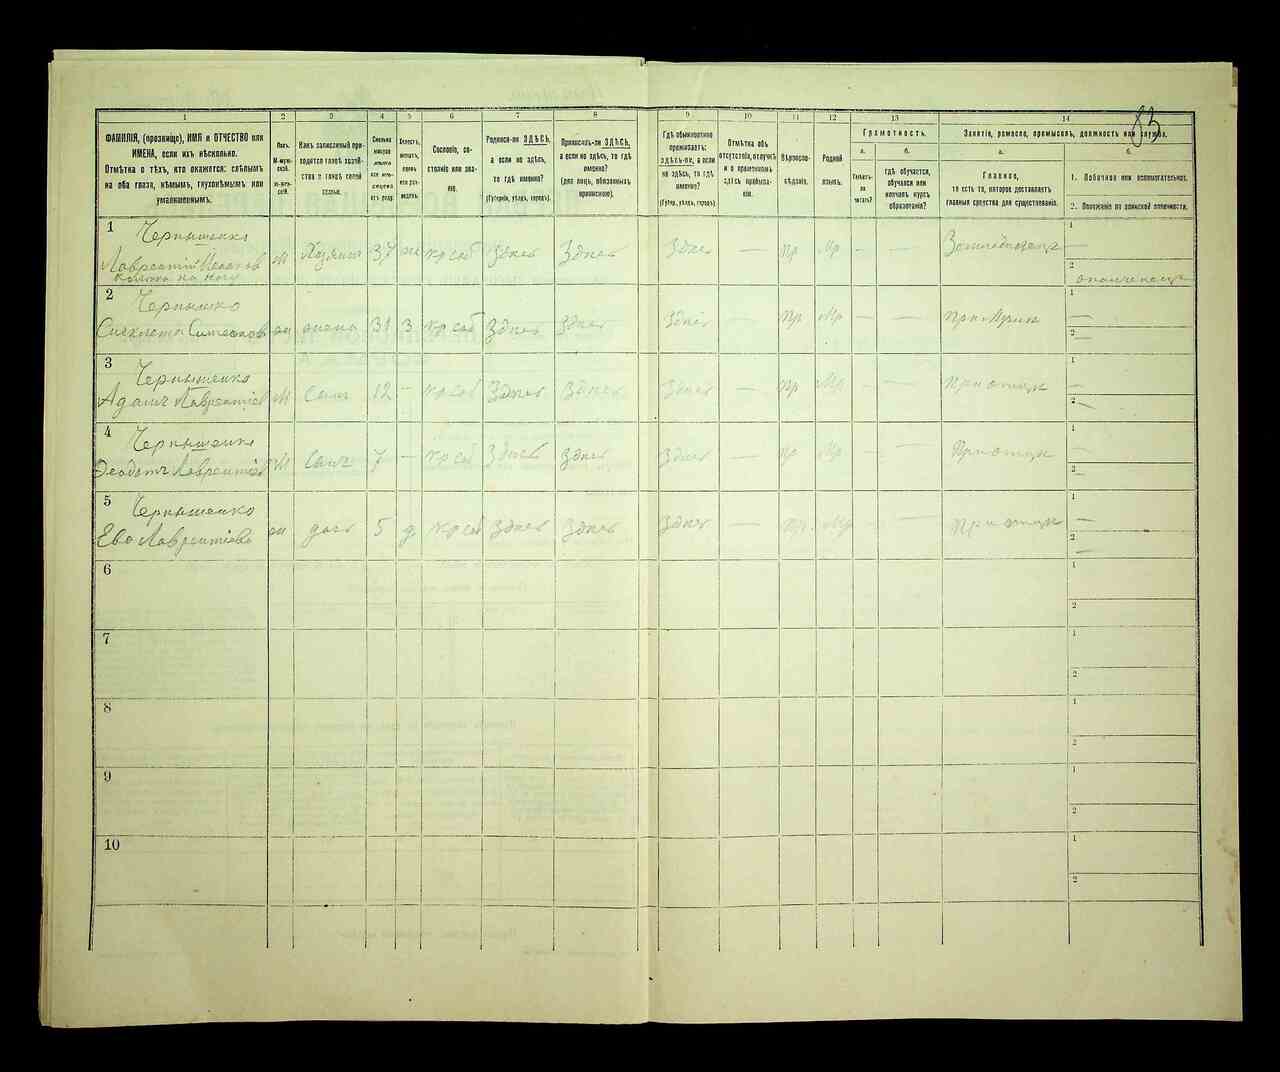 83
1 2 3 4 5 6 7 8 9 10 11 12 13 14
ФАМИЛІЯ, (прозвище), ИМЯ и ОТЧЕСТВО или ИМЕНА, если ихъ нѣсколько.
Отмѣтка о тѣхъ, кто окажется: слѣпымъ на оба глаза, нѣмымъ, глухонѣмымъ или умалишеннымъ.
Полъ.
М-муж-
ской.
Ж-жен-
скій.
Какъ записанный при-
ходится главѣ хозяй-
ства и главѣ своей
семьи.
Сколько
минуло
лѣтъ
или мѣ-
сяцевъ
отъ роду.
Сословіе, со-
стояніе или зва-
ніе.
Родился-ли ЗДѢСЬ,
а если не здѣсь,
то гдѣ именно?
(Губернія, уѣздъ, городъ).
Приписанъ-ли ЗДѢСЬ,
а если не здѣсь, то гдѣ
именно?
(для лицъ, обязанныхъ
припискою).
Гдѣ обыкновенно
проживаетъ:
здѣсь-ли, а если
не здѣсь, то гдѣ
именно?
(Губерн., уѣздъ, городъ).
Отмѣтка объ
отсутствіи, отлучкѣ
и о временномъ
здѣсь пребыва-
ніи.
Вѣроиспо-
вѣданіе.
Родной
языкъ.
Грамотность.
а. б.
Умѣетъ-
ли
читать?
гдѣ обучается,
обучался или
кончилъ курсъ
образованія?
Занятіе, ремесло, промыселъ, должность или служба.
а. б.
Главное,
то есть то, которое доставляетъ
главныя средства для существованія.
1. Побочное или вспомогательное.
2. Положеніе по воинской повинности.
1 Чернышенко
Лаврентій М Хозяинъ 37 кр соб Здѣсь Здѣсь Здѣсь — Пр Мр — — Земледѣлецъ —
2 ополченецъ
2
жена 31 3 кр соб Здѣсь Здѣсь Здѣсь — Пр Мр — — При мужѣ —
3 Чернышенко
Адамъ Лаврентіев М Сынъ 12 — кр соб Здѣсь Здѣсь Здѣсь — Пр Мр — — При отцѣ —
4 Чернышенко
Феодотъ Лаврентіев М Сынъ 7 — кр соб Здѣсь Здѣсь Здѣсь — Пр Мр — — При отцѣ —
5 Чернышенко
Ева Лаврентіева ж дочь 5 д кр соб Здѣсь Здѣсь Здѣсь — Пр Мр — — При отцѣ —
6
7
8
9
10